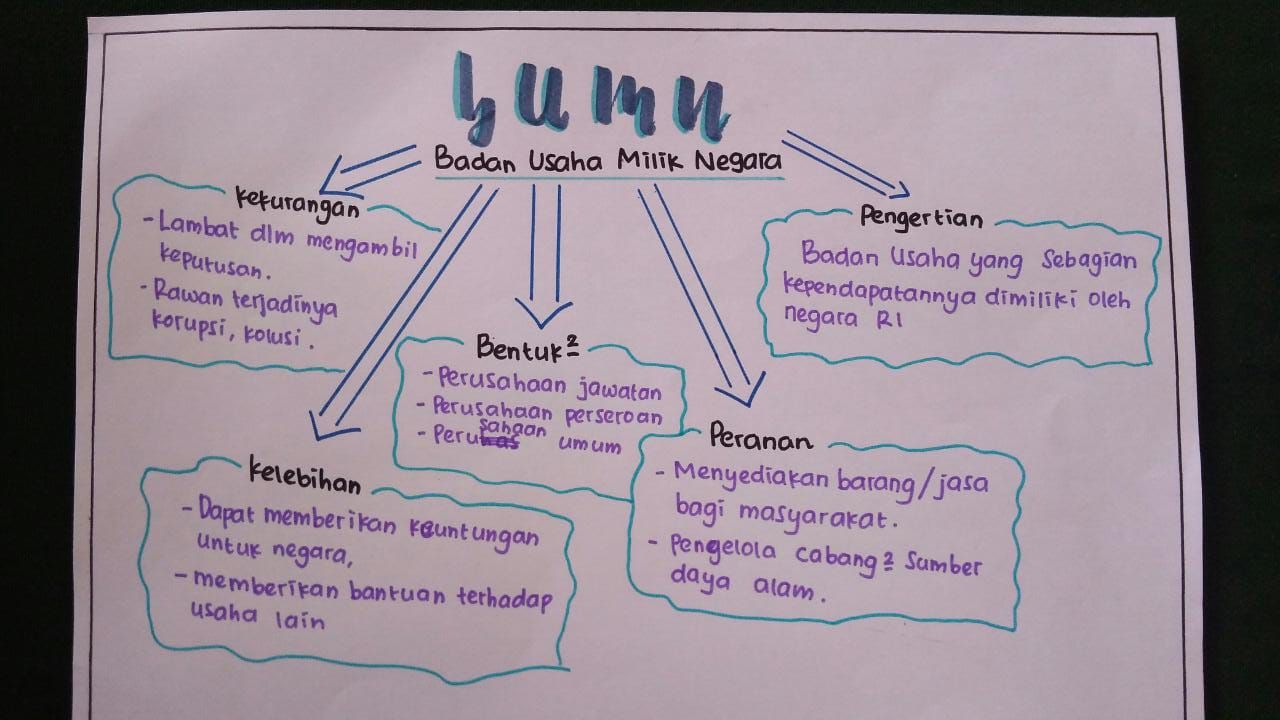 bumn
Badan Usaha Milik Negara
Kekurangan
- Lambat dlm mengambil
keputusan.
- Rawan terjadinya
korupsi, kolusi.
Pengertian
Badan Usaha yang Sebagian
kependapatannya dimiliki oleh
negara RI
Bentuk²
- Perusahaan jawatan
- Perusahaan perseroan
- Perusahaan umum
Kelebihan
- Dapat memberikan keuntungan
untuk negara,
- memberikan bantuan terhadap
usaha lain
Peranan
- Menyediakan barang/jasa
bagi masyarakat.
- Pengelola cabang² Sumber
daya alam.